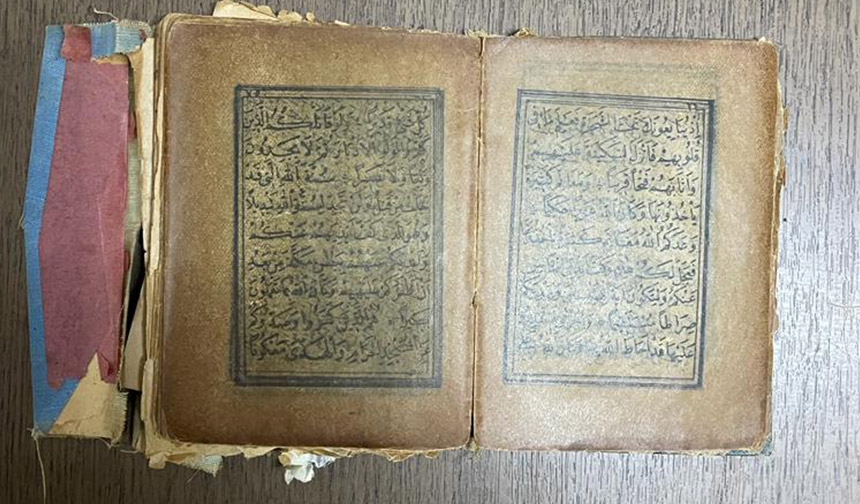 إذ يبايعونك تحت الشجرة فعلم ما في
قلوبهم فأنزل السكينة عليهم
وأثابهم فتحا قريبا ومغانم كثيرة
يأخذونها وكان الله عزيزا حكيما
وعدكم الله مغانم كثيرة تأخذونها
فعجل لكم هذه وكف أيدي الناس
عنكم ولتكون آية للمؤمنين ويهديكم
صراطا مستقيما وأخرى لم تقدروا
عليها قد أحاط الله بها وكان الله على
كل شيء قديرا ولو قاتلكم الذين
كفروا لولوا الأدبار ثم لا يجدون
وليا ولا نصيرا سنة الله التي قد
خلت من قبل ولن تجد لسنة الله تبديلا
وهو الذي كف أيديهم عنكم
وأيديكم عنهم ببطن مكة من بعد
أن أظفركم عليهم وكان الله بما تعملون
بصيرا هم الذين كفروا وصدوكم
عن المسجد الحرام والهدي معكوفا